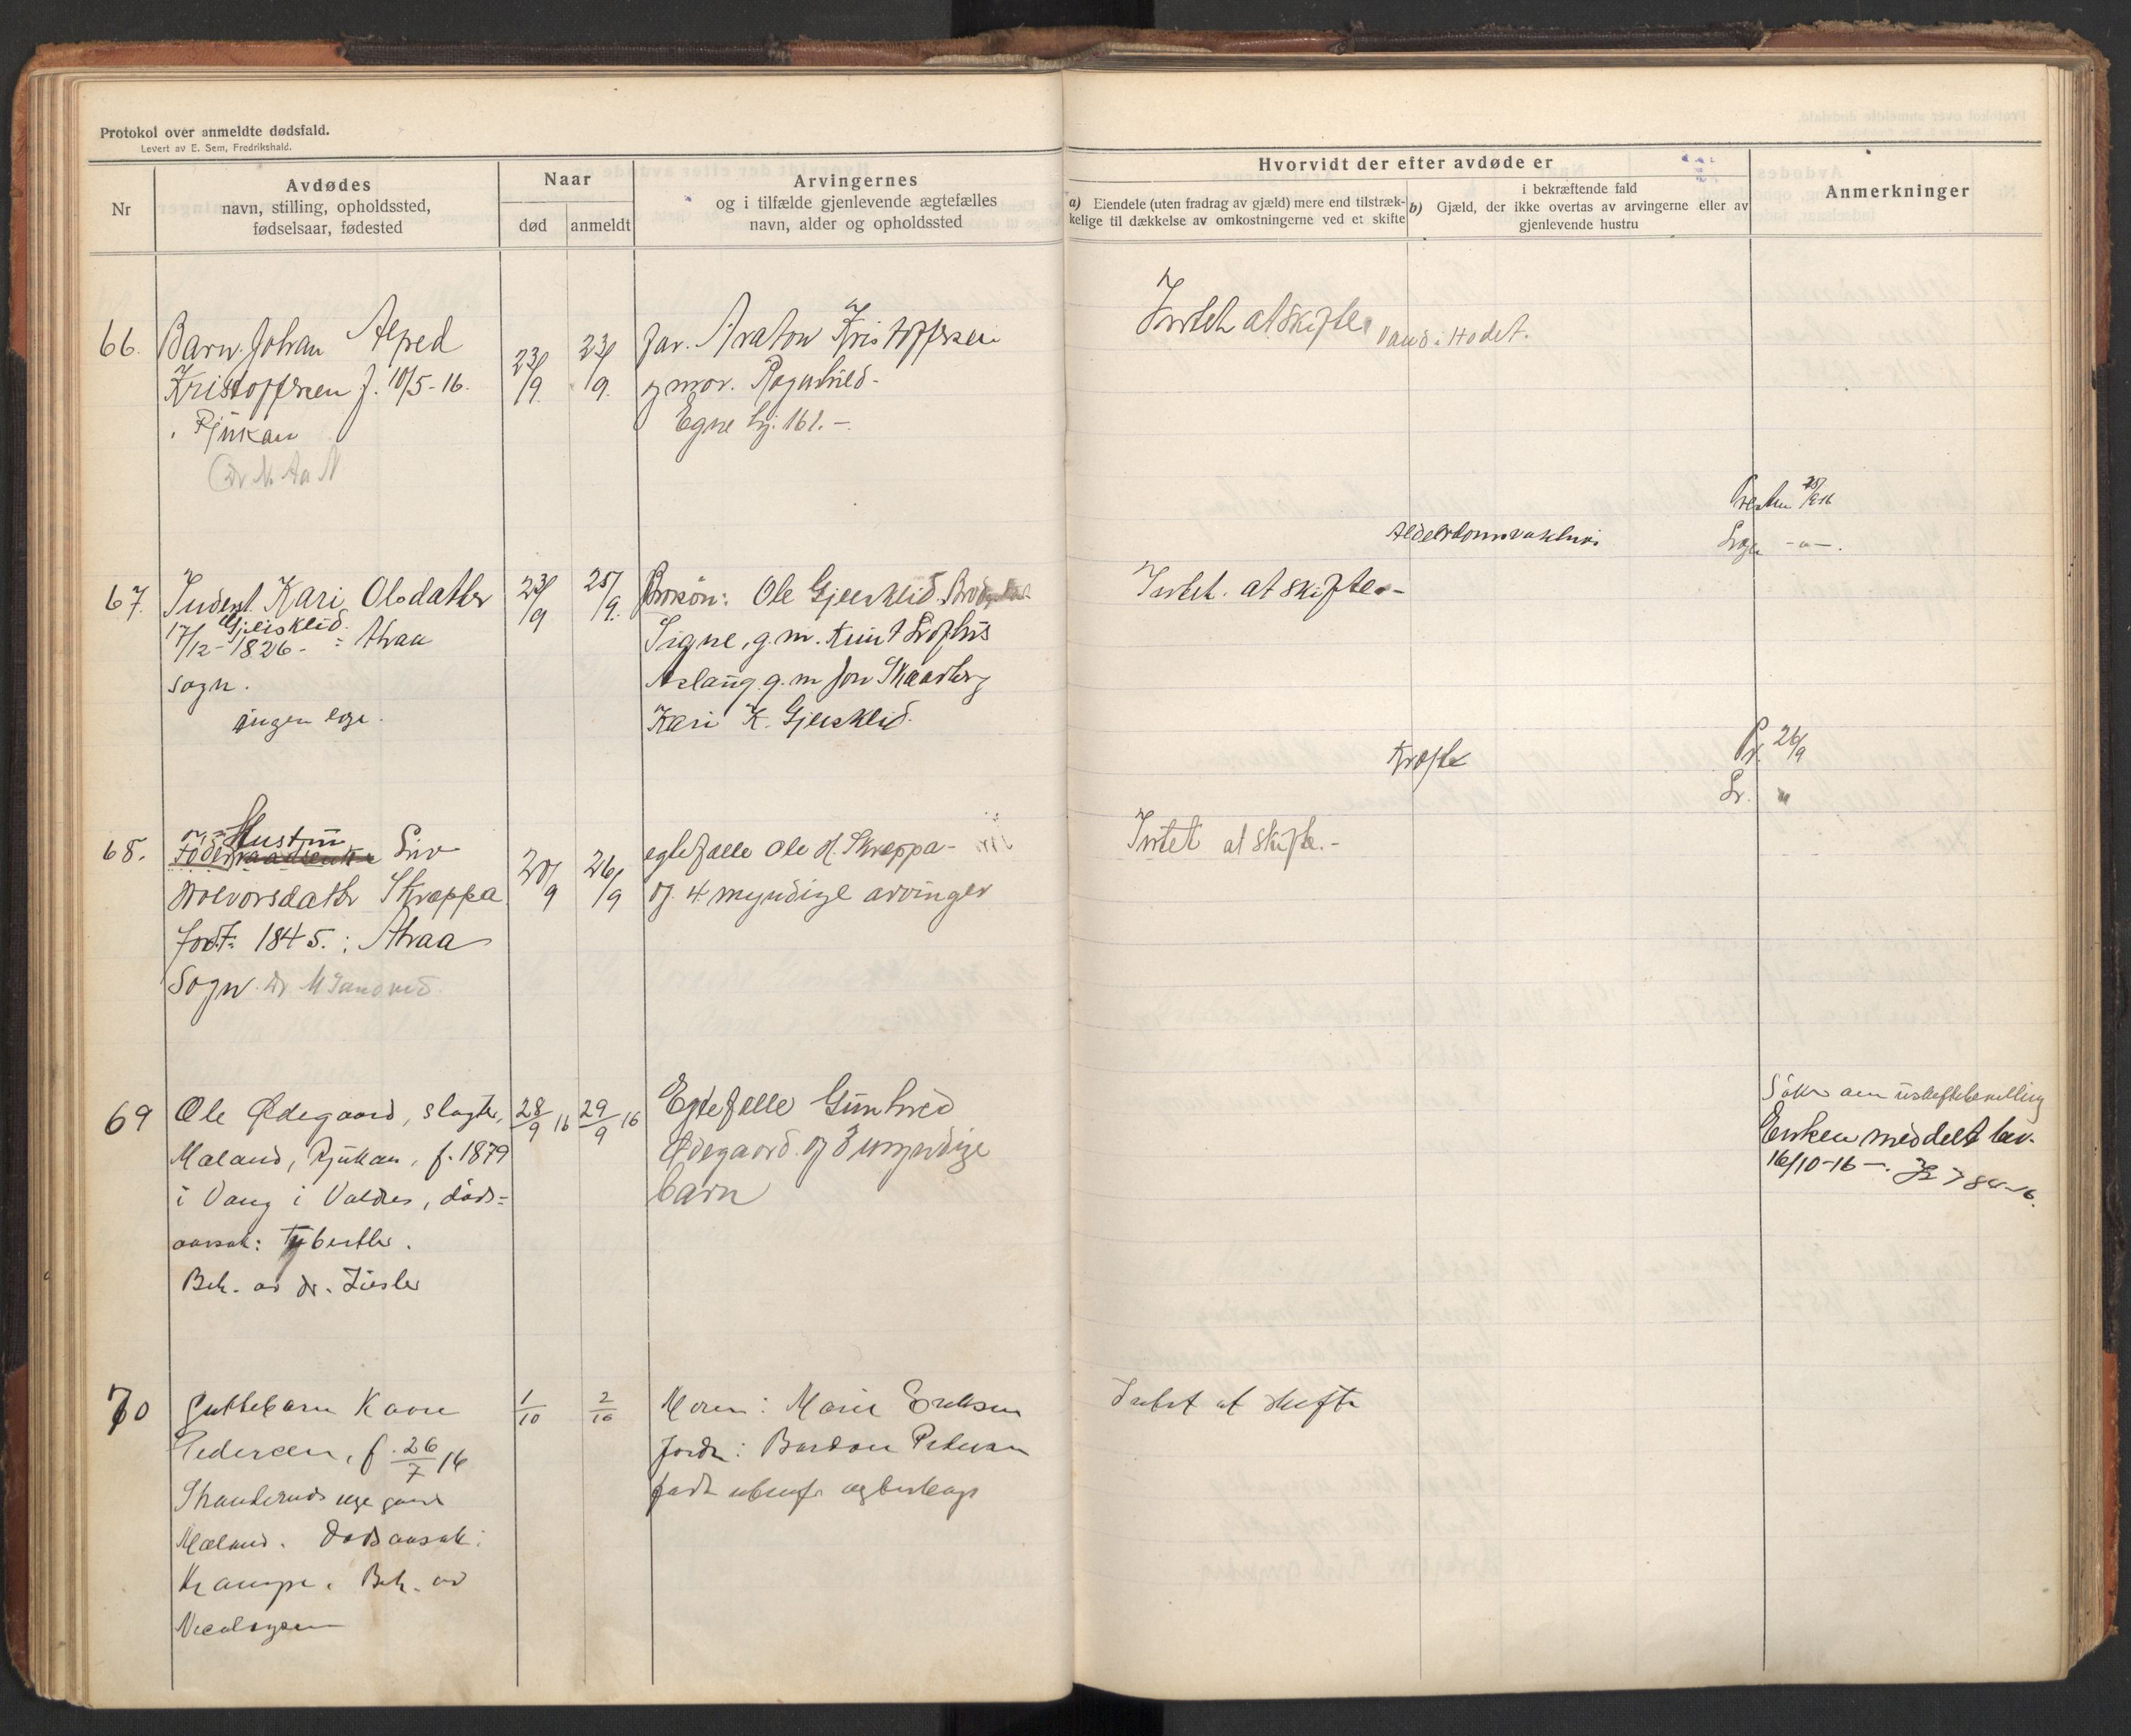 Protokol over anmeldte dødsfald.
Levert av E. Sem, Fredrikshald.
Nr
Avdødes
navn, stilling, opholdssted,
fødselsaar, fødested
Naar
død
anmeldt
Arvingernes
og i tilfælde gjenlevende ægtefælles
navn, alder og opholdssted
Hvorvidt der efter avdøde er
a) Eiendele (uten fradrag av gjæld) mere end tilstræk-
kelige til dækkelse av omkostningerne ved et skifte
i bekræftende fald
b) Gjæld, der ikke overtas av arvingerne eller av
gjenlevende hustru
Anmerkninger
66.
Barn. Johan Alfred
Kristoffersen f. 10/5-16.
Rjukan
23/9.
23/9.
far. Kristoffersen
og mor. Ragnhild-
Egne hj. 161.-
Intet at skifte
Vand i Hodet.
67.
Kari Olsdatter
Gjeisklid.
17/12-1826. Atraa
sogn.
ingen lege.
23/9
25/9.
Brorsøn: Ole Gjeisklid.
Signe, g.m. Knut Lofhus
Aslaug g.m Jon Skaarberg
Kari K. Gjeisklid.
Alderdomssvakhet
Intet. at skifte.-
Presten 25/9 16
Læge -"-.
68.
Hustru Liv
Halvorsdatter Skreppa
født: 1845. i Atraa
Sogn. Dr M Sandved.
20/9
26/9
egtefælle Ole H. Skreppa-
og 4 myndige arvinger
Kræft
Intet at skifte.-
Pr. 26/9
L. "
69
Ole Ødegaard, slagter,
Mæland, Rjukan, f. 1879
i Vang i Valdres, døds=
aarsak: Tyberkler.
Beh. av dr. Ziesler
28/9 16
29/9 16
Egtefelle Gunhild
Ødegaard og 3 umyndige
barn
Søker om uskiftebevilling
Enken meddelt bev.
16/10-16-.
70
Guttebarn Kaare
Pedersen, f. 26/7 16
Mæland. Dødsaarsak:
Krampe. Beh. av
Nicolaysen
1/10
2/10
Moren: Marie Eriksen
Fordr: Pedersen
Intet at skifte